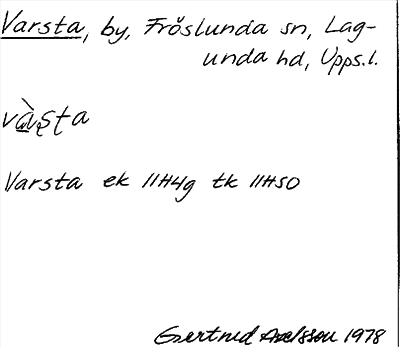 Varsta, by, Fröslunda sn, Lag-
unda hd, Upps.l.
Varsta ek 11H4g tk 11H50
Gertrud Axelsson 1978